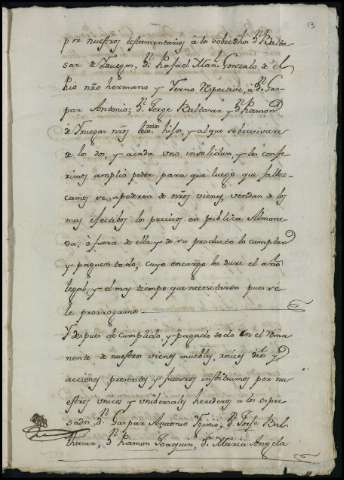 13
por nuestros testamentarios a los sobredhos Dn Balta
sar de Yruegas, Dn Rafael Man. Gonzalo de el
Rio nro hermano y Yerno respective, a Dn Gas
par Antonio, Dn Jorge Baltasar y Dn Ramon
de Yruegas nros hijos, y al que sobreviviere
de los dos, y a cada uno insolidum, y les confe
rimos amplio poder para que luego que falles
camos se apoderen de nros vienes vendan de los
mas efectivos los precisos en publica Almone
da, o fuera de ella y de su producto lo cumplan
y paguen todo, cuyo encargo les dure el año
legal, y el mas tiempo que necesitaren pues se
le prorrogamos
Y despues de cumplido y pagado todo en el rema
nente de nuestros vienes muebles, raices dros y
acciones, presentes y futuros instituimos por nu
estros unicos y universales herederos a los expre
sados Dn Gaspar Antonio Dn Jorge Bal
thasar, Dn Ramon Joaquin, Da Maria Angela